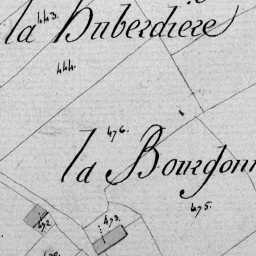 443.
la Huberdiere
444.
476.
la Bourgonn
475.
472
473.